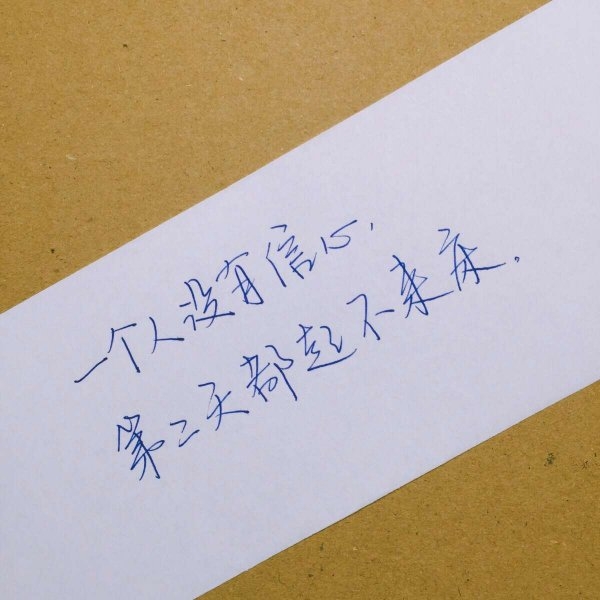 一个人没有信心，
第二天都起不来床.